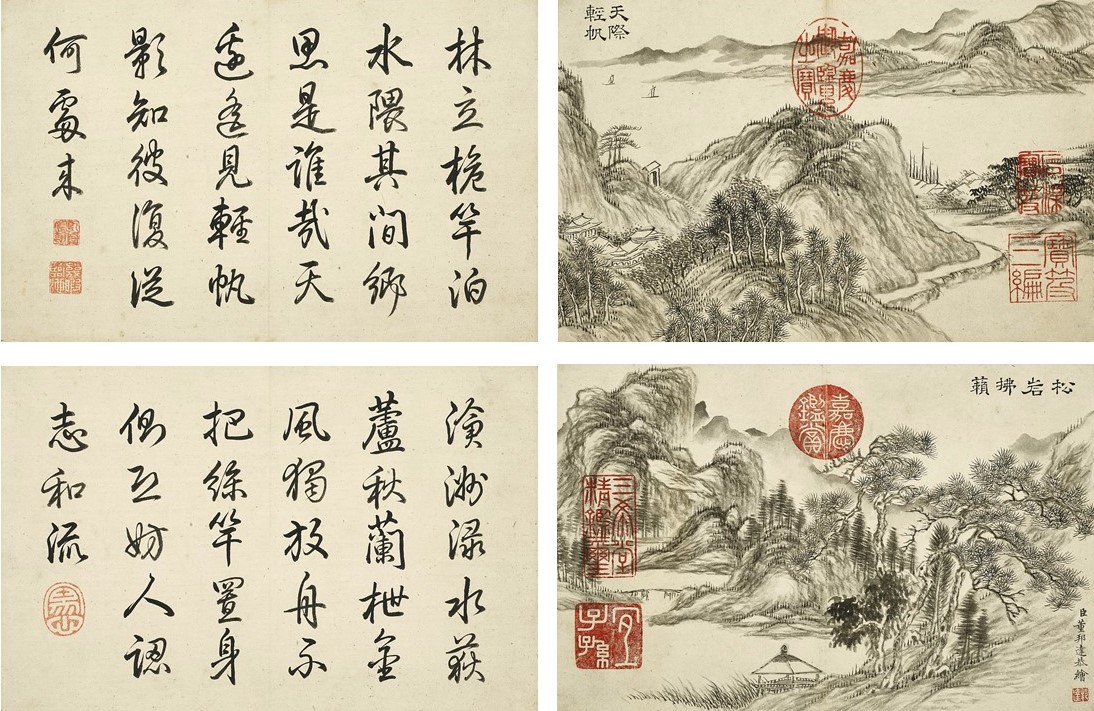 林立桅竿泊
水隈其間鄉
思是誰哉天
邊遙見輕帆
影知彼復從
何處來
天際
輕帆
嘉慶
御覽
之寶
石渠
寶笈
寶笈
三編
滄洲淥水荻
蘆秋蘭枻金
風獨放舟不
把絲竿置身
側恐妨人認
志和流
松岩拂籟
嘉慶
鑑賞
三希堂
精鑑璽
宜
子孫
臣董邦達恭繪